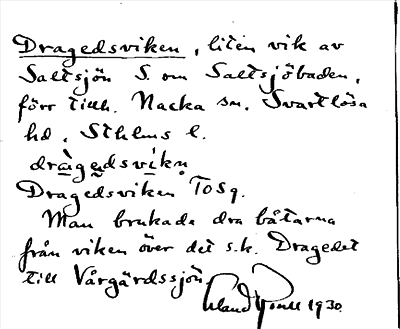 Dragedsviken, liten vik av
Saltsjön S. om Saltsjöbaden,
förr tillh. Nacka sn. Svartlösa
hd. Sthlms l.
dràgedsvikn
Dragedsviken TOSq.
Man brukade dra båtarna
från viken över det s.k. Dragedet
till Vårgärdssjön.
Erland 1930.